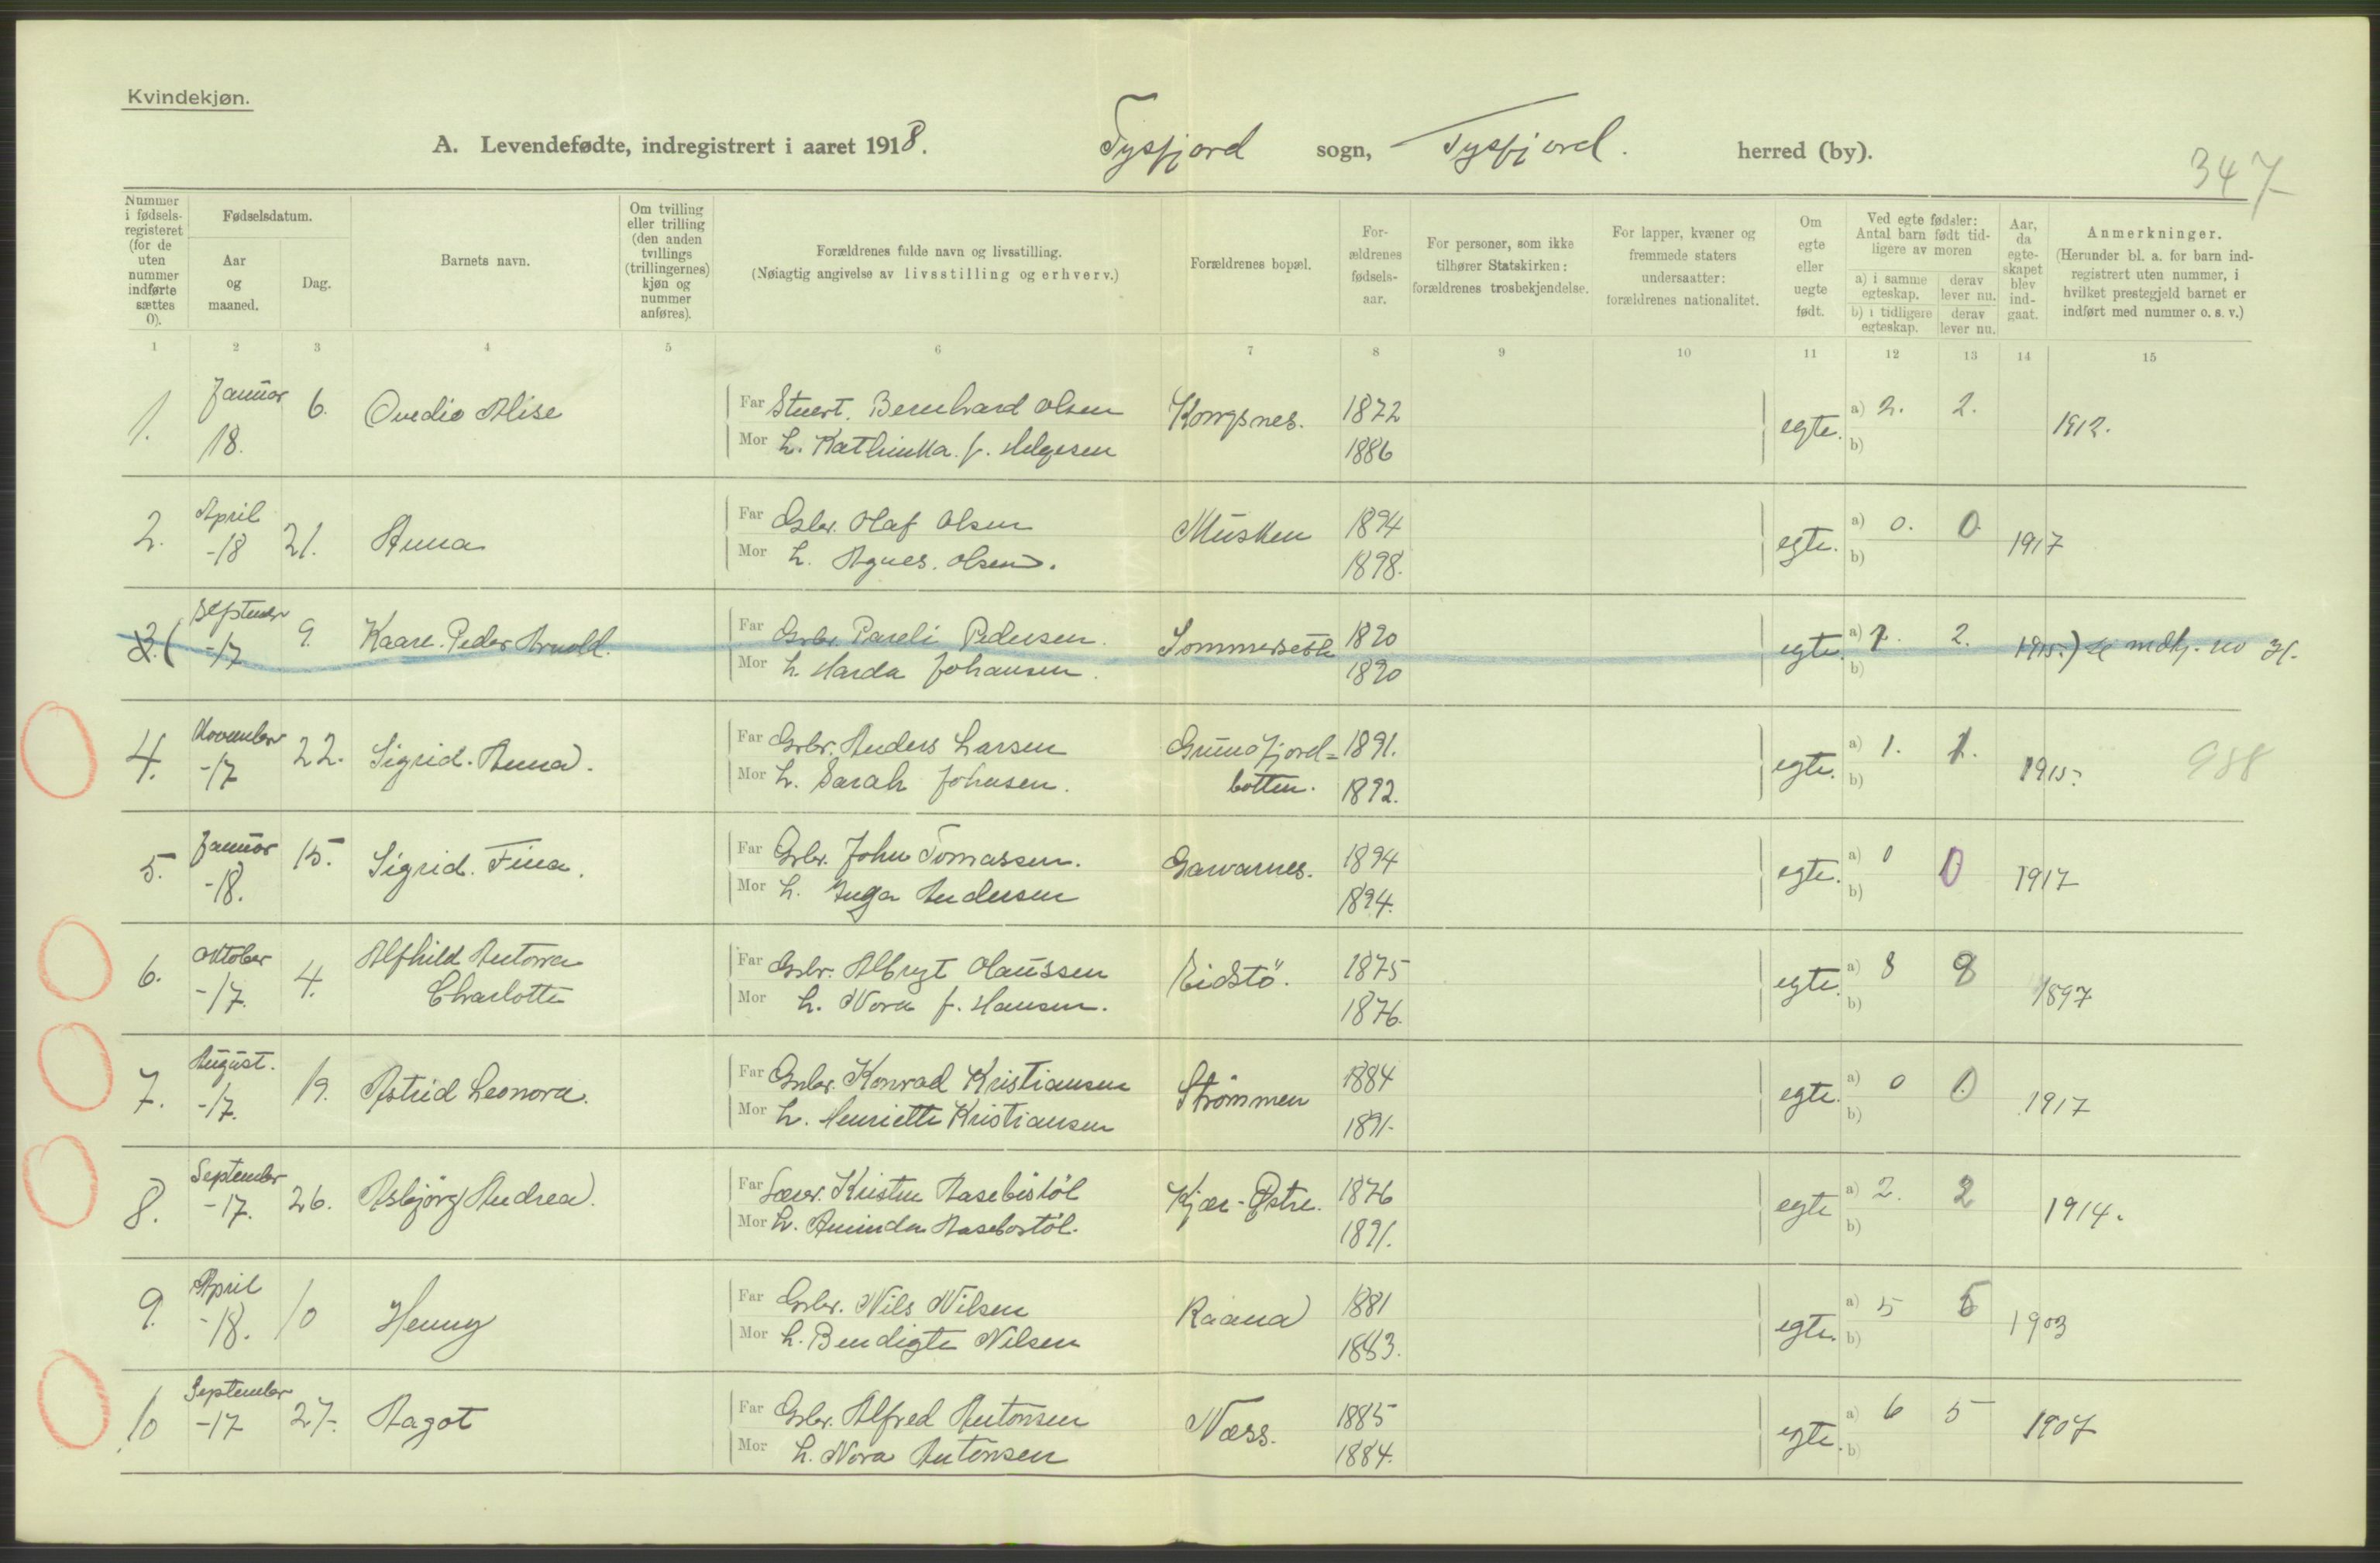 Kvindekjøn.
A. Levendefødte, indregistrert i aaret 1918. Tysfjord sogn, Tysfjord. herred (by).
347
Nummer i fødselsregisteret (for de uten nummer indførte sættes 0).
Fødselsdatum.
Aar og maaned.
Dag.
Barnets navn.
Om tvilling eller trilling (den anden tvillings (trillingernes) kjøn og nummer anføres).
Forældrenes fulde navn og livsstilling.
(Nøiagtig angivelse av livsstilling og erhverv.)
Forældrenes bopæl.
Forældrenes fødselsaar.
For personer, som ikke tilhører Statskirken: forældrenes trosbekjendelse.
For lapper, kvæner og fremmede staters undersaatter: forældrenes nationalitet.
Om egte eller uegte født.
Ved egte fødsler: Antal barn født tidligere av moren
a) i samme egteskap. derav lever nu.
b) i tidligere egteskap. derav lever nu.
Aar, da egteskapet blev indgaat.
Anmerkninger.
(Herunder bl. a. for barn indregistrert uten nummer, i hvilket prestegjeld barnet er indført med nummer o. s. v.)
1 2 3 4 5 6 7 8 9 10 11 12 13 14 15
1. Januar 18. 6. Ovedie Alise
Far Stuert. Bernhard Olsen Kongsnes. 1872 egte. a) 2. 2. 1912.
Mor h. Kathinka f. Helgesen 1886 b)
2. April -18 21. Anna
Far Gbr. Olaf Olsen Musken 1894 egte. a) 0. 0. 1917
Mor h. Agnes. Olsen. 1898. b)
3.( September -17 9. Kaare. Peder Arnold.
Far Grbr. Pareli Pedersen. Sommersette 1890 egte. a) 2. 2. 1915.) se mdkj. no 31.
Mor h. Harda Johansen. 1890 b)
4. November -17 22. Sigrid. Anna.
Far Grbr. Anders Larsen Grunnfjord= 1891. egte. a) 1. 1. 1915. 988
Mor h. Sarah Johnsen. botten. 1892. b)
5. Januar -18. 15. Sigrid. Fina.
Far Grbr. John Tomassen. Gavarnes. 1894 egte. a) 0 0 1917
Mor h. Inga Andersen 1894. b)
6. Oktober -17. 4. Alfhild Antona Charlotte
Far Grbr. Albrygt Olaussen Eidstö. 1875 egte. a) 8 8 1897
Mor h. Nora f. Hansen. 1876. b)
7. August. -17. 19. Astrid Leonora.
Far Grbr. Konrad Kristiansen Strömmen 1884 egte. a) 0 0 1917
Mor h. Henriette Kristiansen 1891. b)
8. September -17. 26. Asbjörg Andrea.
Far Lærer. Kristen Aasebøstöl Kjær-Østre. 1876 egte a) 2. 2 1914.
Mor h. Aminda Aasebostöl. 1891. b)
9. April -18. 10 Henny
Far Grbr. Nils Nilsen Raana 1881 egte. a) 5 5 1903
Mor h. Bendigte Nilsen 1883. b)
10 September -17 27. Aagot
Far Grbr. Alfred Antonsen Næss. 1885 egte. a) 6 5 1907
Mor h. Nora Antonsen 1884. b)